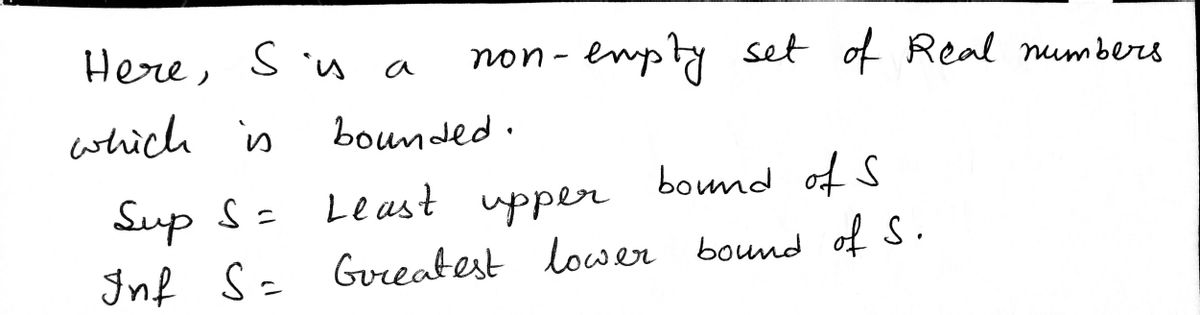 Here, S is a non-empty set of Real numbers
which is bounded.
Sup S = Least upper bound of S
Inf S = Greatest lower bound of S.